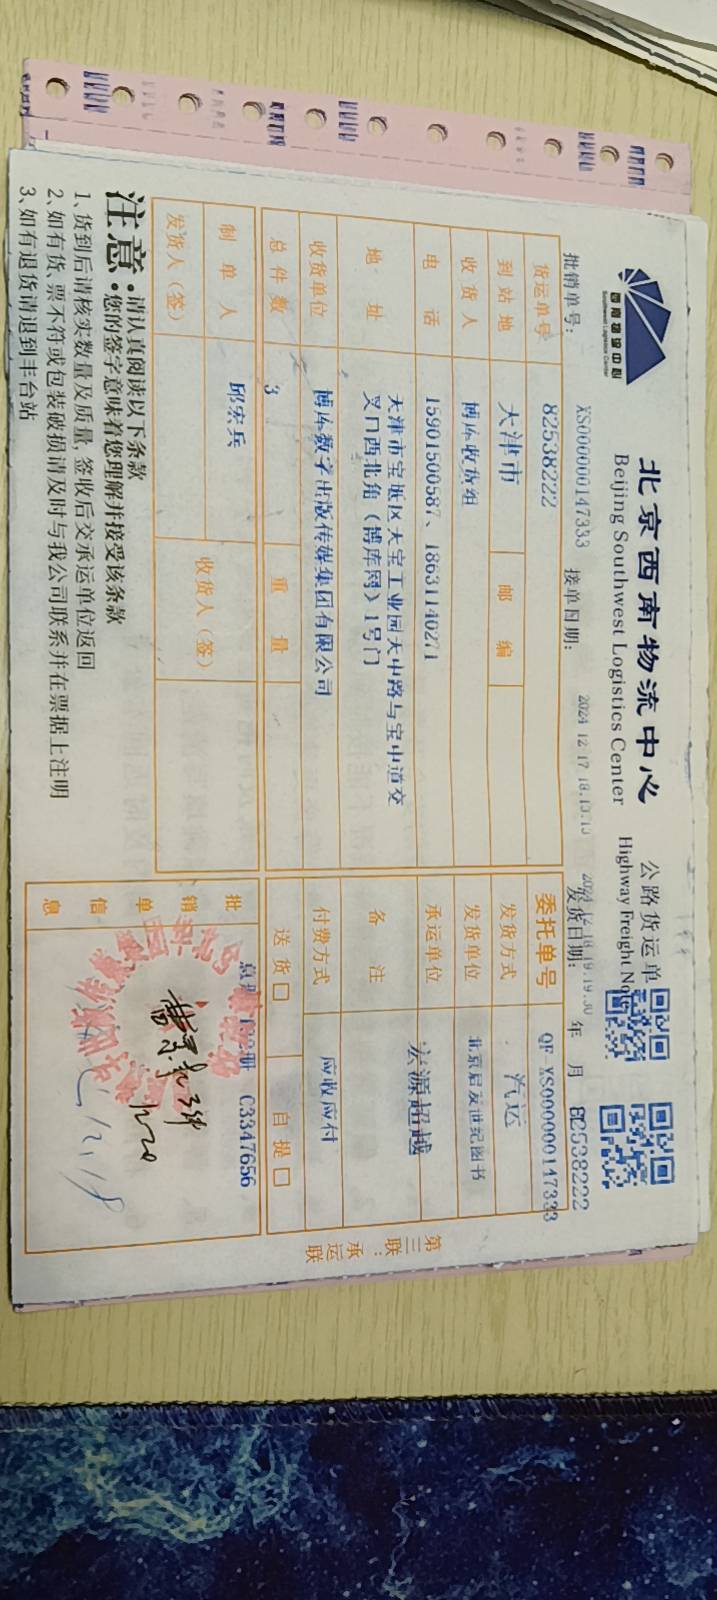 西南物流中心
Southwest Logistics Center
北京西南物流中心
Beijing Southwest Logistics Center
公路货运单
Highway Freight Note
批销单号: XS000000147333 接单日期: 2024 12 17 18.13.13 发货日期: 年 月 82538222
货运单号 82538222 委托单号 QF XS000000147333
到站地 天津市 邮编 发货方式 汽运
收货人 博库收货组 发货单位 北京启发世纪图书
电话 15901500587、18631140271 承运单位 宏源超越
地址 天津市宝坻区天宝工业园天中路与宝中道交
叉口西北角(博库网)1号门
备注
收货单位 博库数字出版传媒集团有限公司 付费方式 应收应付
总件数 3 重量 送货□ 自提□
制单人 邱宏兵 收货人(签)
发货人(签)
批销单信息 C3347656
12.18
第三联:承运联
注意
·请认真阅读以下条款
·您的签字意味着您理解并接受该条款
1、货到后请核实数量及质量,签收后交承运单位返回
2、如有货、票不符或包装破损请及时与我公司联系并在票据上注明
3、如有退货请退到丰台站